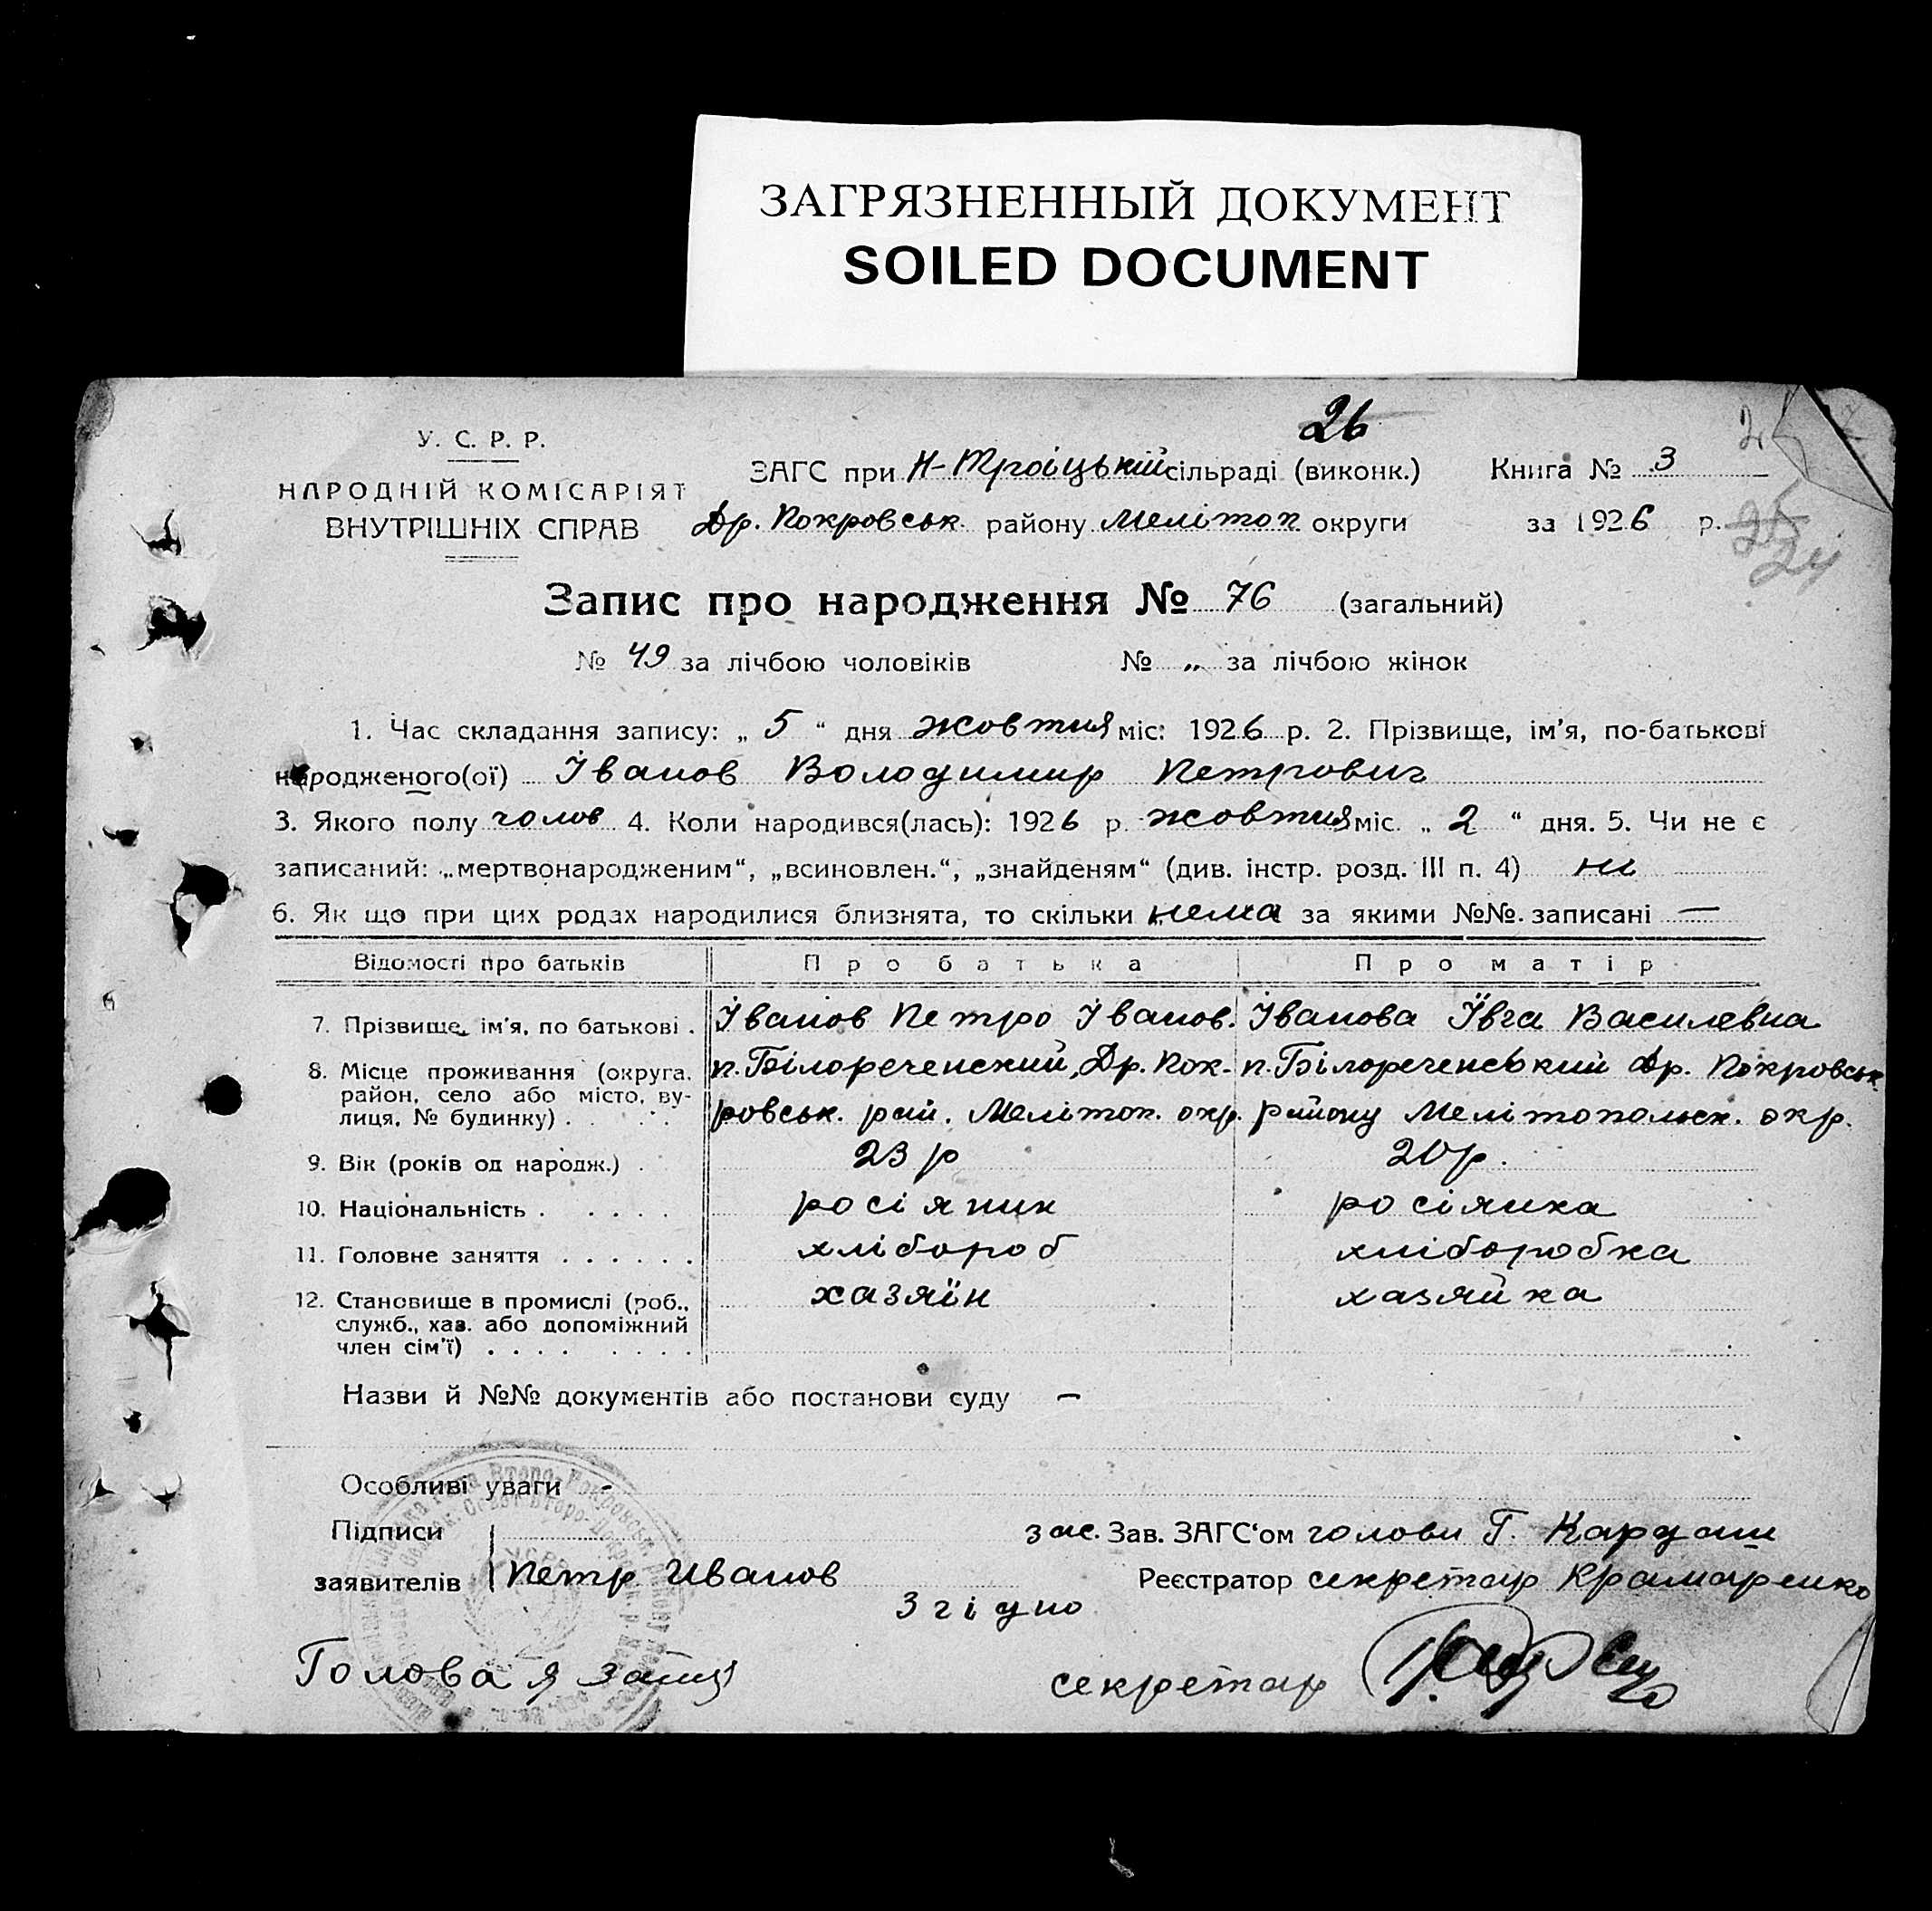 ЗАГРЯЗНЕННЫЙ ДОКУМЕНТ
SOILED DOCUMENT
26
У. С. Р. Р.
НАРОДНІЙ КОМІСАРІЯТ
ВНУТРІШНІХ СПРАВ
ЗАГС при Н-Троіцькій сільраді (виконк.) Книга № 3
Др. Покровськ. району Мелітоп. округи за 1926 р.
25
24
Запис про народження № 76 (загальний)
№ 49 за лічбою чоловіків № „ за лічбою жінок
1. Час складання запису: „ 5 “ дня жовтня міс: 1926 р. 2. Прізвище, ім'я, по-батькові
народженого(ої) Іванов Володимир Петрович
3. Якого полу чолов 4. Коли народився(лась): 1926 р. жовтня міс. „ 2 “ дня. 5. Чи не є
записаний: „мертвонародженим“, „всиновлен.“, „знайденям“ (див. інстр. розд. III п. 4) ні
6. Як що при цих родах народилися близнята, то скільки нема за якими №№. записані —
Відомості про батьків Про батька Про матір
7. Прізвище, ім'я, по батькові . Іванов Петро Іванов. Іванова Ївга Василевна
8. Місце проживання (округа, район, село або місто, вулиця, № будинку) . п. Білореченский, Др. Пок- п. Білореченський Др. Покровськ.
ровськ. рай. Мелітоп. окр. району Мелітопольск. окр.
9. Вік (років од народж.) . 23 р 20 р.
10. Національність . . . . . росіянин росіянка
11. Головне заняття . . . . . . хлібороб хліборобка
12. Становище в промислі (роб., служб., хаз. або допоміжний член сім'ї) . . . . . . . . хазяїн хазяйка
Назви й №№ документів або постанови суду —
Особливі уваги -
Підписи зас. Зав. ЗАГС'ом голови Г. Кардаш
заявителів Петр Иванов Реєстратор секретар Крамаренко
Згідно
Голова
секретар